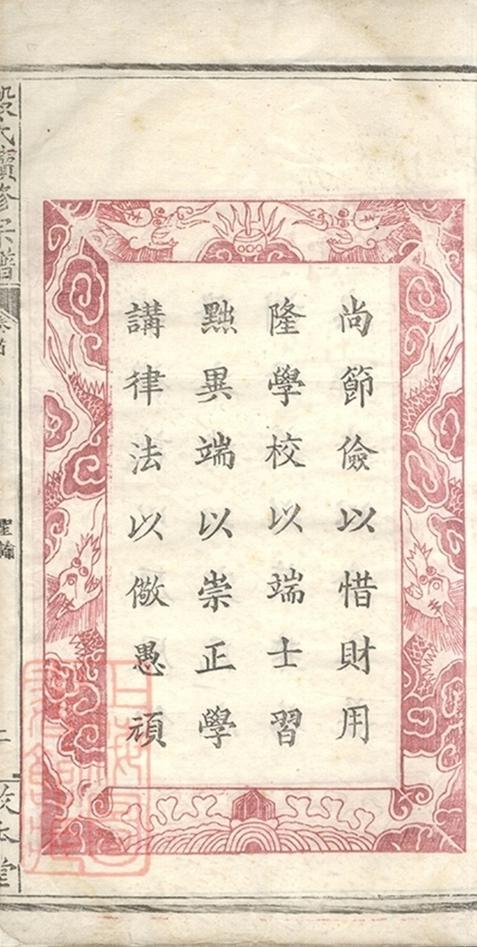 尚節儉以惜財用
隆學校以端士習
黜異端以崇正學
講律法以儆愚頑
氏續修宗譜
卷首
聖諭
上海圖
書館藏